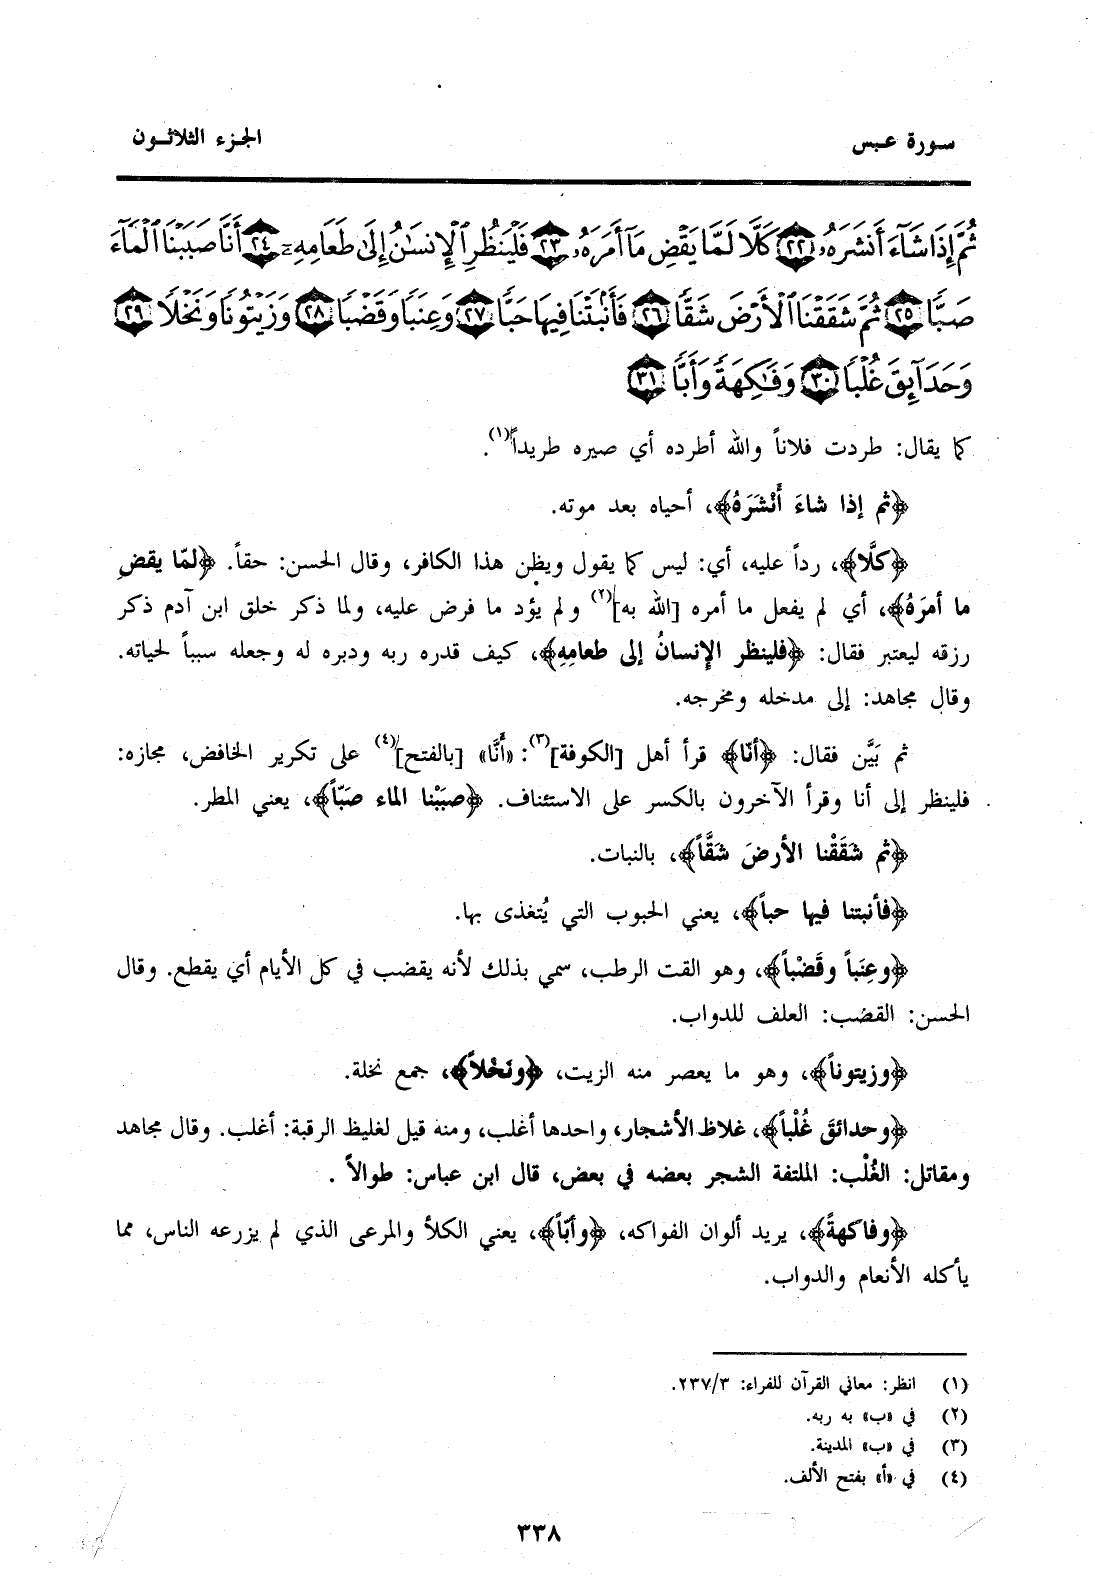 سورة عبس
الجزء الثلاثون
ثُمَّ إِذَا شَآءَ أَنشَرَهُۥ ٢٢ كَلَّا لَمَّا يَقْضِ مَآ أَمَرَهُۥ ٢٣ فَلْيَنظُرِ ٱلْإِنسَٰنُ إِلَىٰ طَعَامِهِۦٓ ٢٤ أَنَّا صَبَبْنَا ٱلْمَآءَ
صَبًّا ٢٥ ثُمَّ شَقَقْنَا ٱلْأَرْضَ شَقًّا ٢٦ فَأَنۢبَتْنَا فِيهَا حَبًّا ٢٧ وَعِنَبًا وَقَضْبًا ٢٨ وَزَيْتُونًا وَنَخْلًا ٢٩
وَحَدَآئِقَ غُلْبًا ٣٠ وَفَٰكِهَةً وَأَبًّا ٣١
كما يقال: طردت فلاناً والله أطرده أي صيره طريداً(١).
﴿ثم إذا شاءَ أَنْشَرَهُ﴾، أحياه بعد موته.
﴿كلَّا﴾، رداً عليه، أي: ليس كما يقول ويظن هذا الكافر، وقال الحسن: حقاً. ﴿لمّا يقضِ
ما أمرَهُ﴾، أي لم يفعل ما أمره [الله به](٢) ولم يؤد ما فرض عليه، ولما ذكر خلق ابن آدم ذكر
رزقه ليعتبر فقال: ﴿فلينظر الإنسانُ إلى طعامِهِ﴾، كيف قدره ربه ودبره له وجعله سبباً لحياته.
وقال مجاهد: إلى مدخله ومخرجه.
ثم بَيَّن فقال: ﴿أنّا﴾ قرأ أهل [الكوفة](٣): «أَنَّا» [بالفتح](٤) على تكرير الخافض، مجازه:
فلينظر إلى أنا وقرأ الآخرون بالكسر على الاستئناف. ﴿صبَبْنا الماء صَبّاً﴾، يعني المطر.
﴿ثم شَقَقْنا الأرضَ شَقَّاً﴾، بالنبات.
﴿فأنبتنا فيها حباً﴾، يعني الحبوب التي يُتغذى بها.
﴿وعِنَباً وقَضْباً﴾، وهو القت الرطب، سمي بذلك لأنه يقضب في كل الأيام أي يقطع. وقال
الحسن: القضب: العلف للدواب.
﴿وزيتوناً﴾، وهو ما يعصر منه الزيت، ﴿ونَخْلاً﴾، جمع نخلة.
﴿وحدائقَ غُلْباً﴾، غلاظ الأشجار، واحدها أغلب، ومنه قيل لغليظ الرقبة: أغلب. وقال مجاهد
ومقاتل: الغُلْب: الملتفة الشجر بعضه في بعض، قال ابن عباس: طوالاً .
﴿وفاكهةً﴾، يريد ألوان الفواكه، ﴿وأبّاً﴾، يعني الكلأ والمرعى الذي لم يزرعه الناس، مما
يأكله الأنعام والدواب.
(١) انظر: معاني القرآن للفراء: ٢٣٧/٣.
(٢) في «ب» به ربه.
(٣) في «ب» المدينة.
(٤) في «أ» بفتح الألف.
٣٣٨